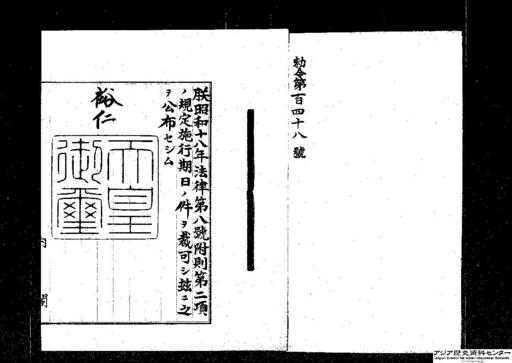 勅令第百四十八號
朕昭和十八年法律第八號附則第二項
ノ規定施行期日ノ件ヲ裁可シ茲ニ之
ヲ公布セシム
裕仁
天皇
御璽
内閣
アジア歴史資料センター
Japan Center for Asian Historical Records